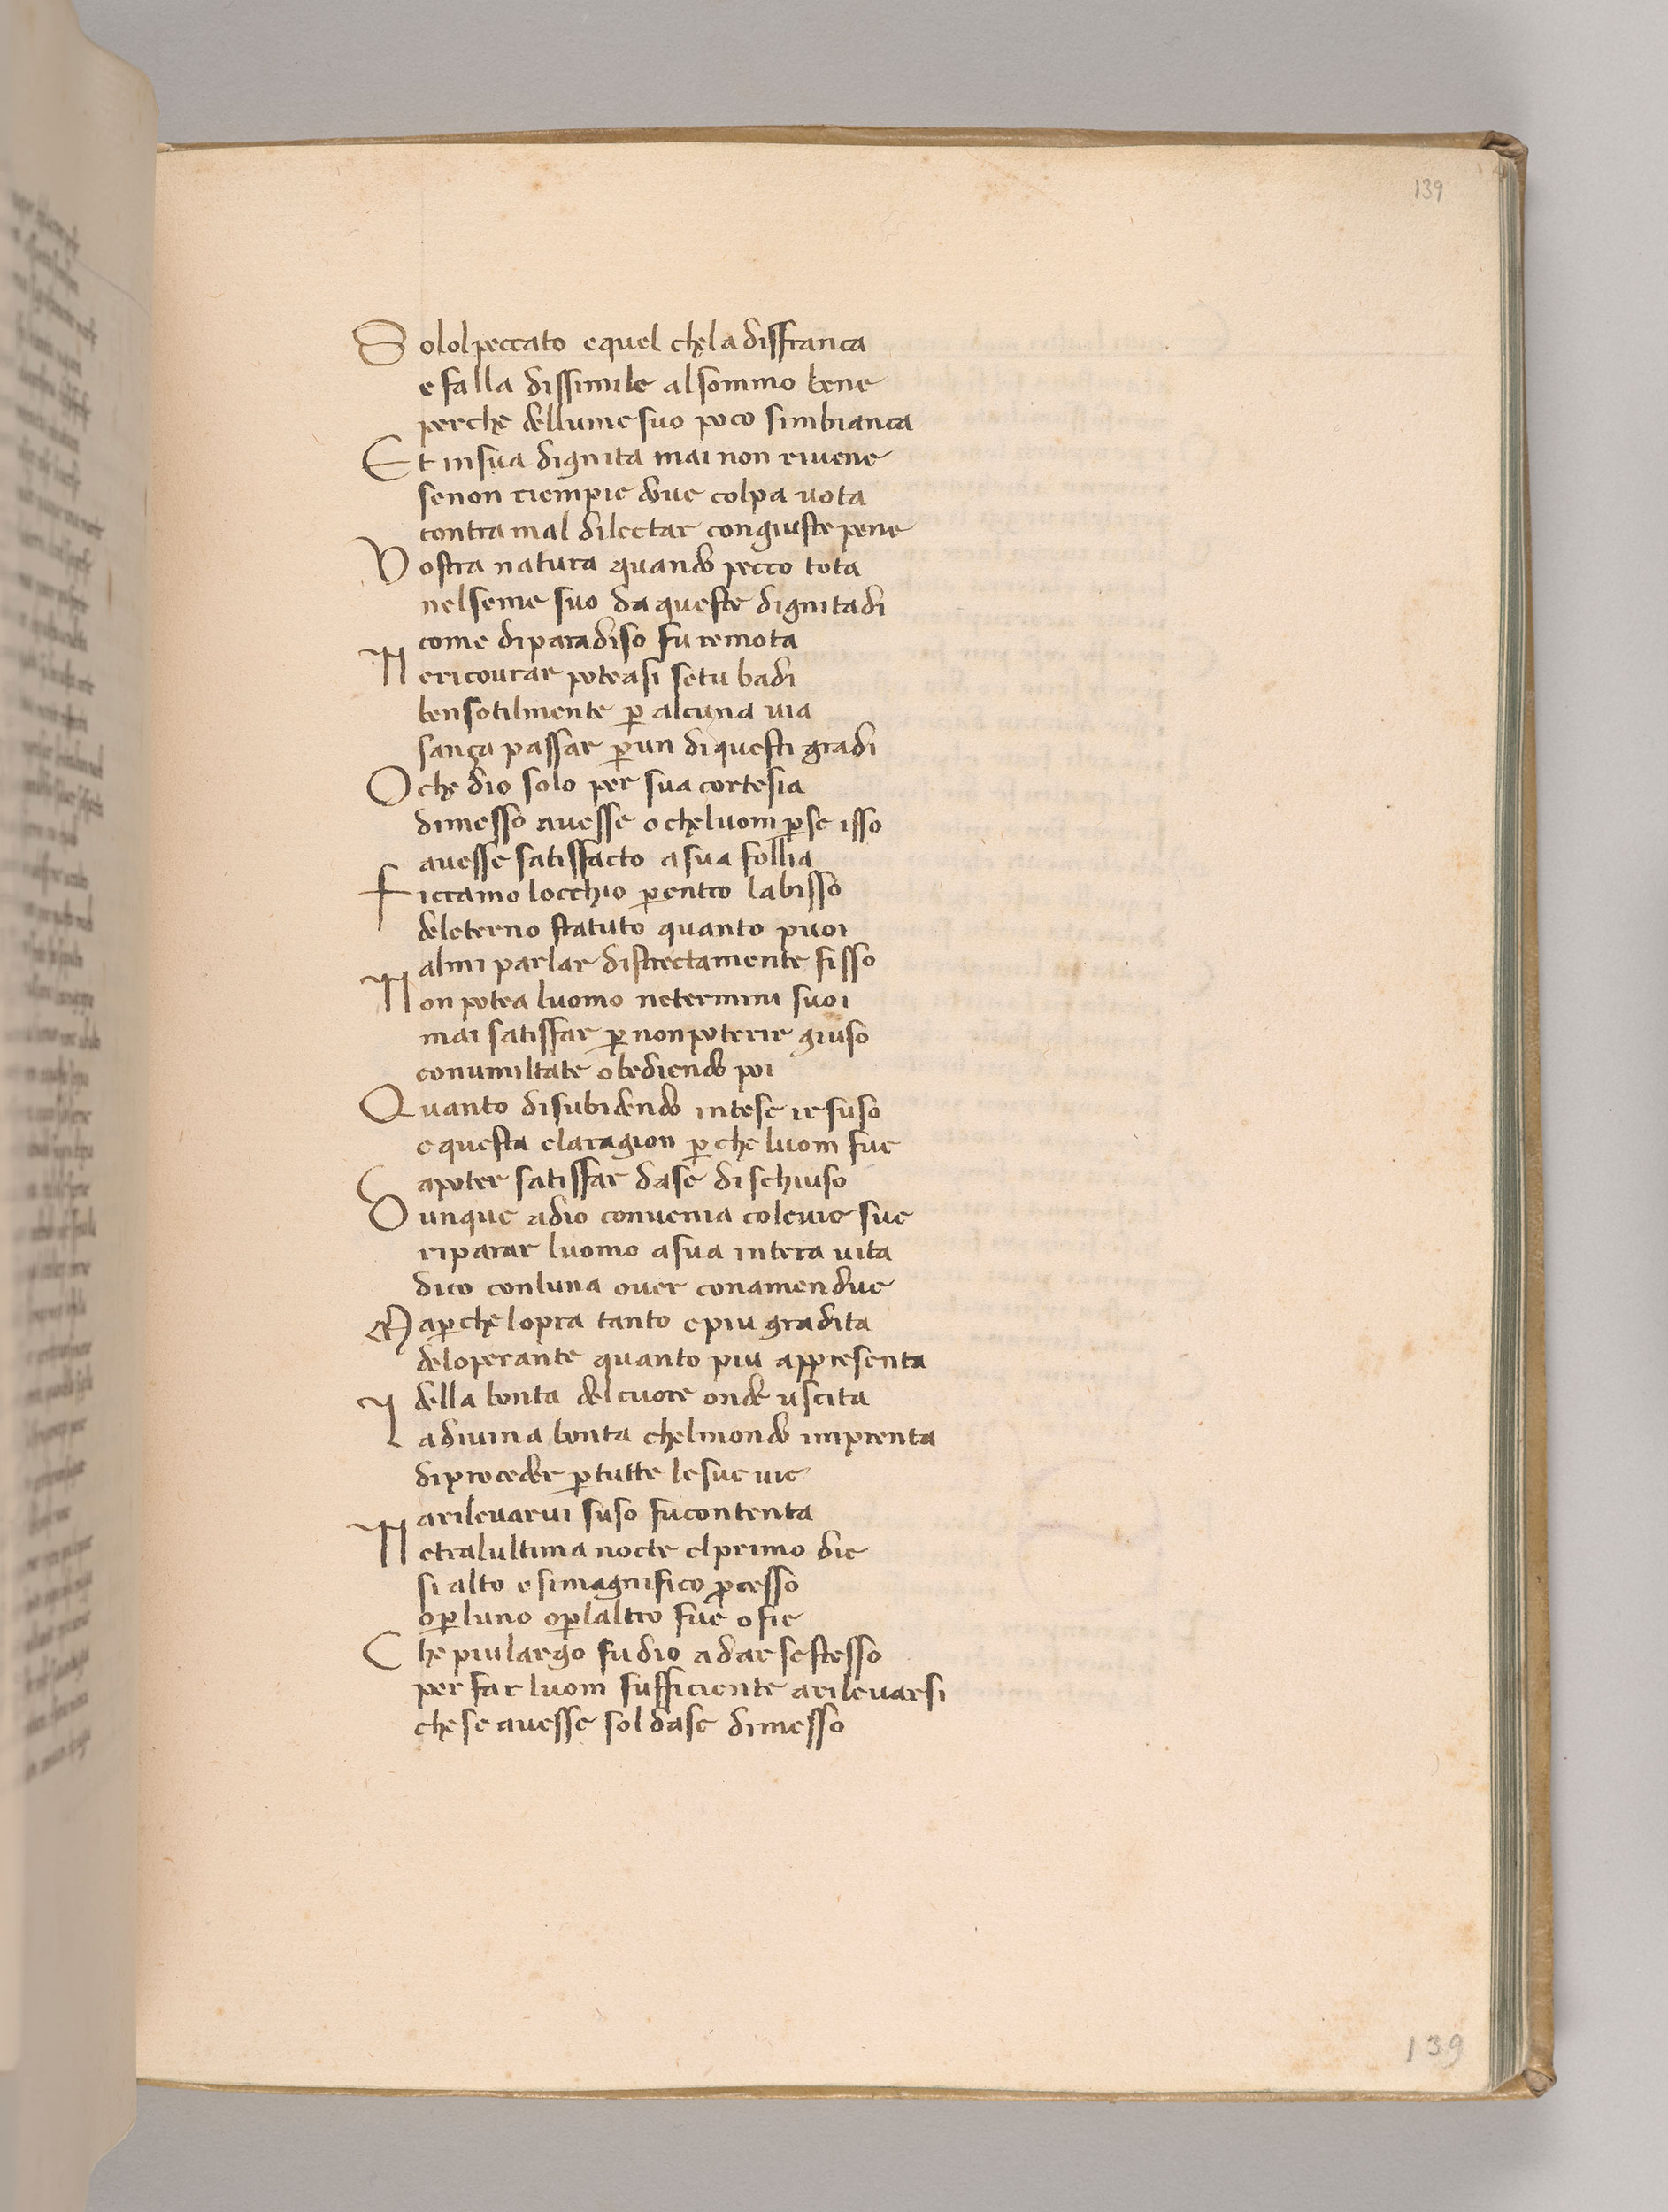 139
Solol peccato equel chella disfranca
e falla dissimile al sommo bene
perche dellume suo poco simbianca
Et insua dignita mai non riuene
senon riempie doue colpa uota
contra mal dilectar congiuste pene
Vostra natura quando pecco tota
nelseme suo da queste dignitadi
come diparadiso fu remota
Ne ricourar poteasi setu badi
ben sotilmente p alcuna uia
sança passar p un di questi gradi
O che dio solo per sua cortesia
dimesso auesse o cheluom pse isso
auesse satisfacto asua follia
Ficcamo locchio pentro labisso
deleterno statuto quanto puoi
almi parlar distrectamente fisso
Non potea luomo netermini suoi
mai satisfar p nonpoterir giuso
conumiltate obediendo poi
Quanto disubidendo intese ir suso
e questa elaragion pche luom fue
apoter satisfar dase dischiuso
Dunque adio conuenia coleuie sue
riparar luomo asua intera uita
dico conluna ouer conamendue
Ma pche lopra tanto epiu gradita
deloperante quanto piu appresenta
della bonta delcuore onde uscita
La diuina bonta chelmondo imprenta
diproceder ptutte lesue uie
arileuarui suso fucontenta
Ne tralultima nocte elprimo die
si alto e simagnifico pcesso
o pluno o plaltro fue o fie
Che piu largo fu dio adar sestesso
per far luom sufficiente arileuarsi
chese auesse sol dase dimesso
139